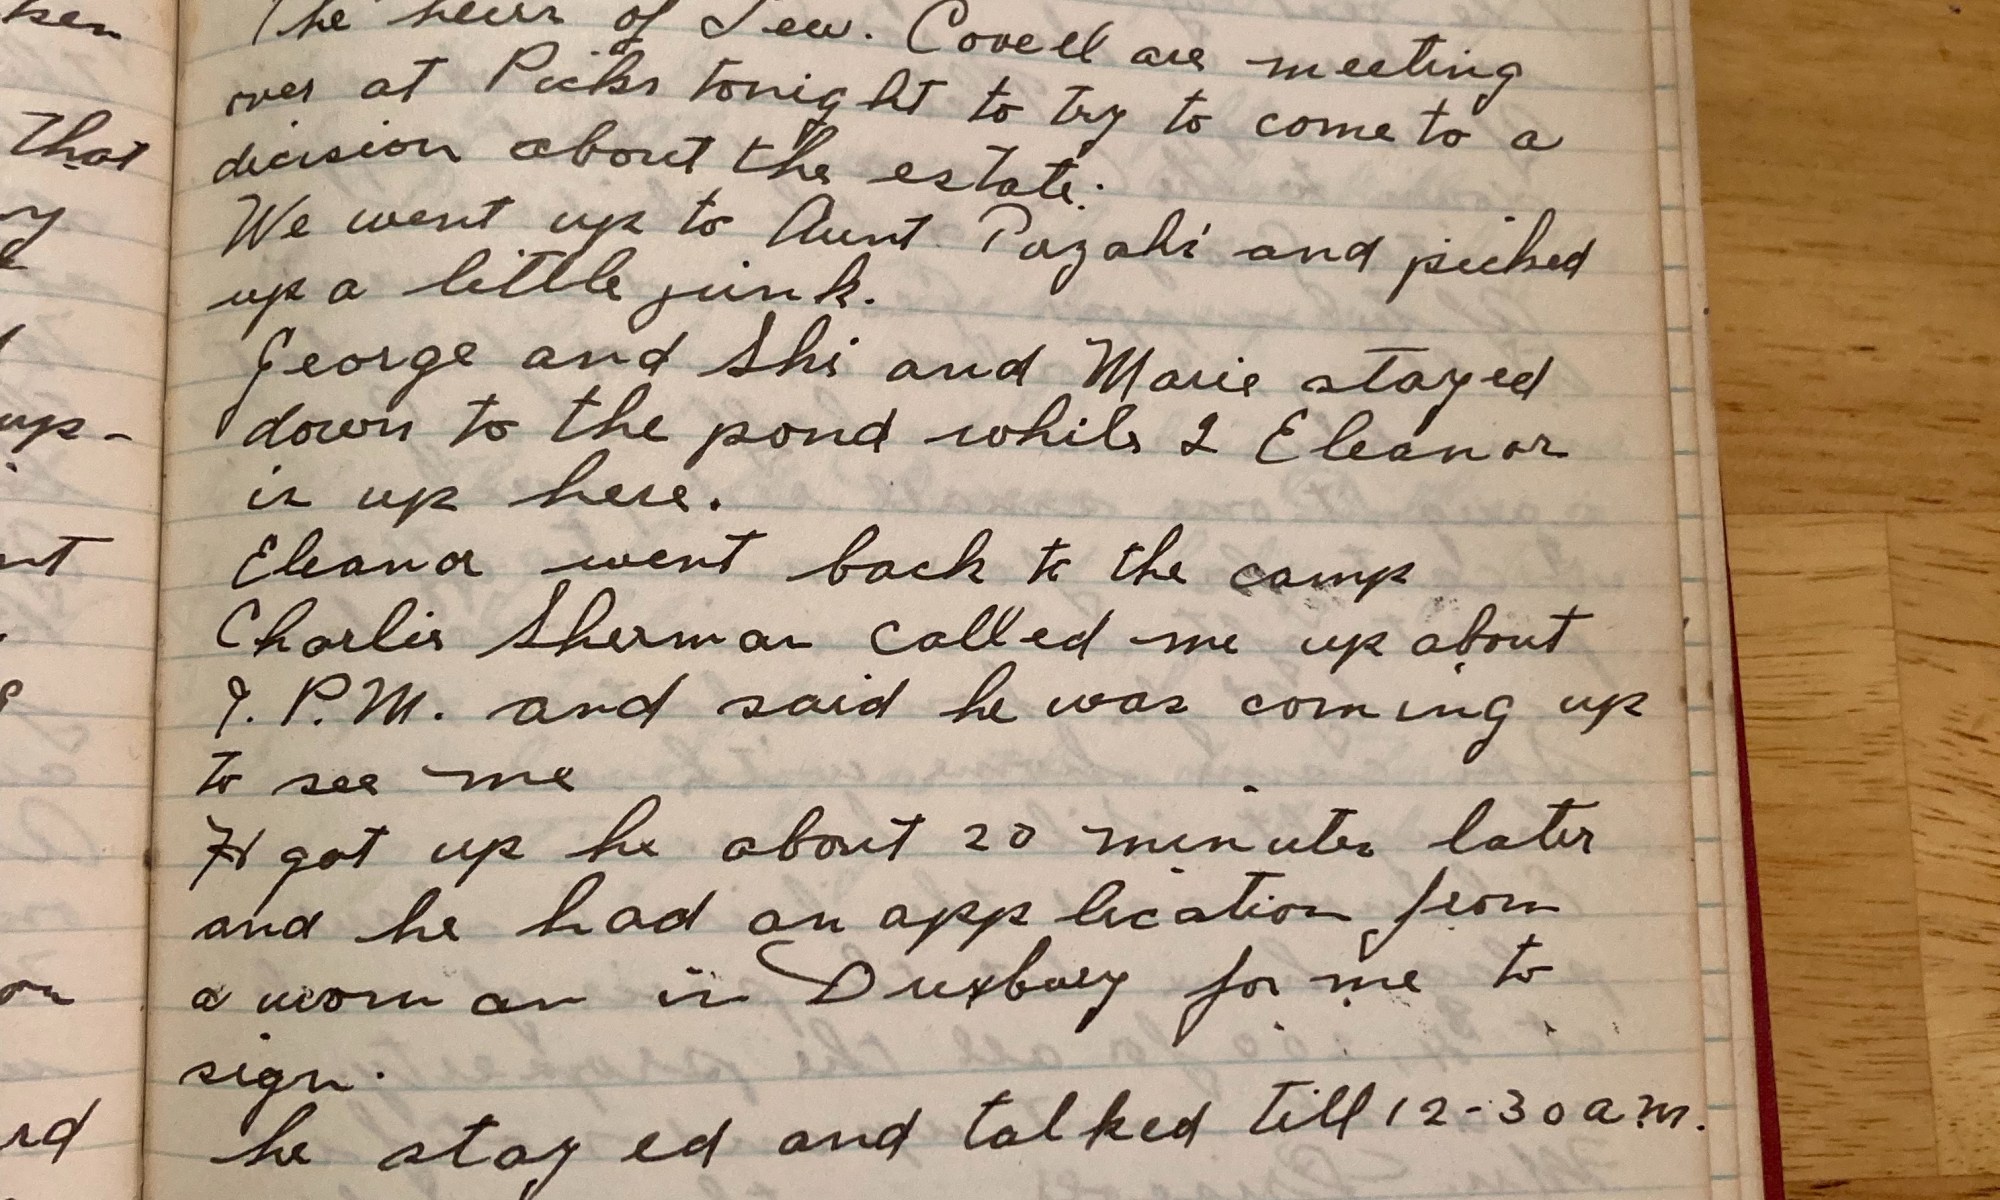 ken
That
up-
nt
on
rd
The heirs of Lew. Covell are meeting
over at Picks tonight to try to come to a
decision about the estate.
We went up to Aunt Pazahi and picked
up a little junk.
George and Shi and Marie stayed
down to the pond while & Eleanor
is up here.
Eleanor went back to the camp
Charlie Sherman called me up about
9. P.M. and said he was coming up
to see me
got up he about 20 minutes later
and he had an application from
a woman in Duxbury for me to
sign.
he stayed and talked till 12-30 a.m.